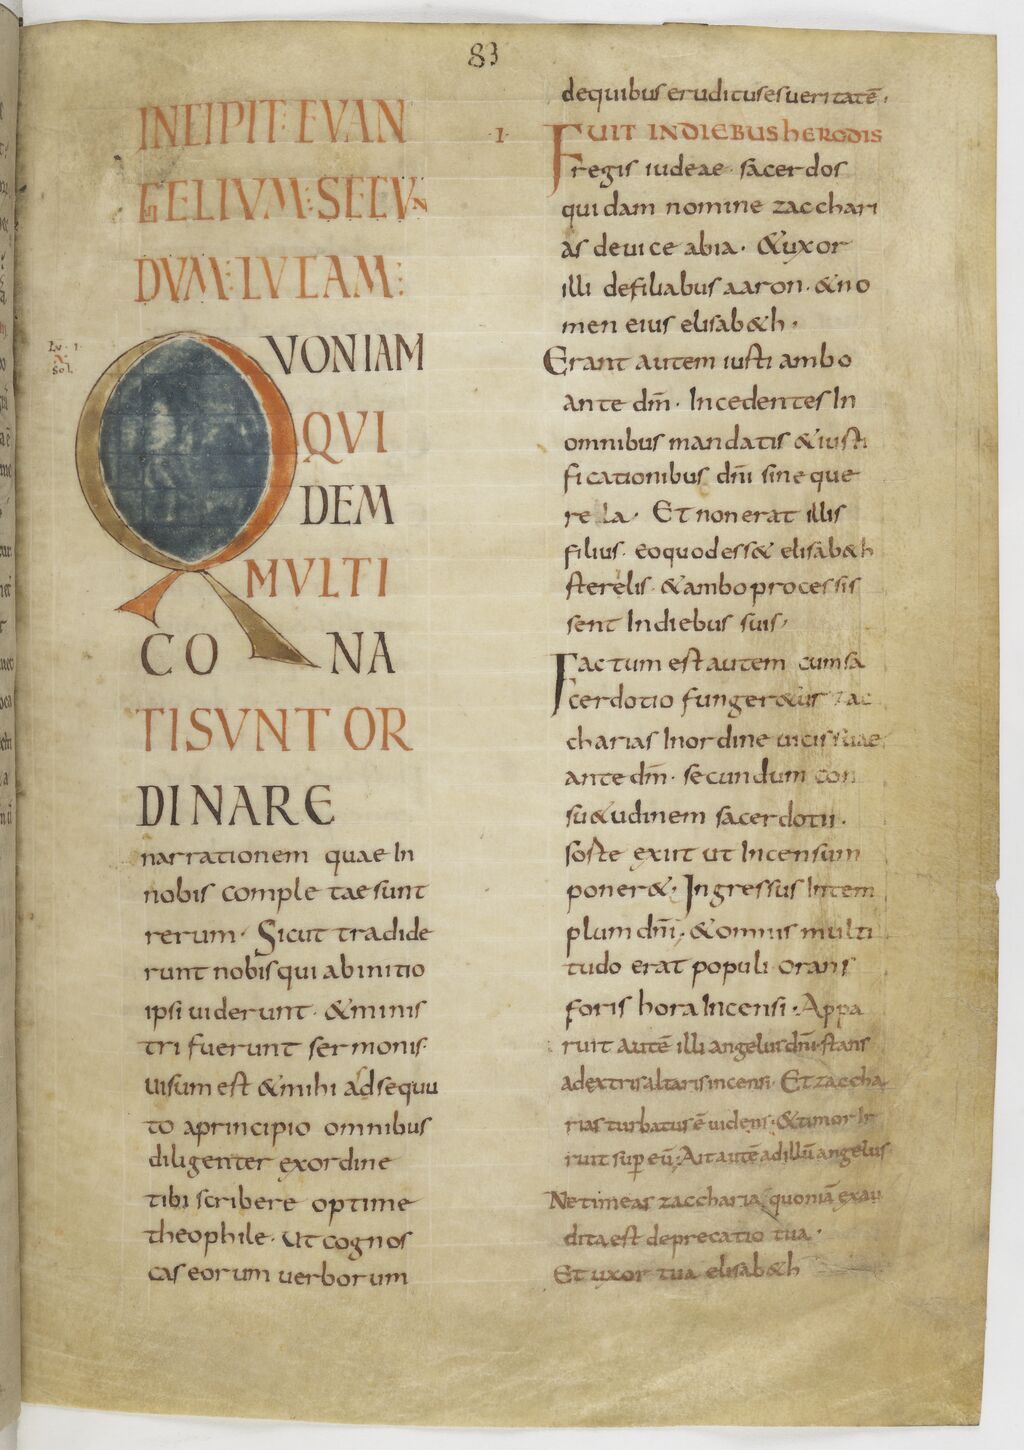 83
INCIPIT: EVAN
GELIVM: SECVN
DVM: LVCAM:
Lu · 1
A
sol.
QVONIAM
QVI
DEM
MVLTI
CO NA
TI SVNT OR
DINARE
narrationem quae In
nobis comple tae sunt
rerum · Sicut tradide
runt nobis qui ab initio
ipsi uiderunt · & minis
tri fuerunt sermonis ·
uisum est & mihi adsequu
to aprincipio omnibus
diligenter exordine
tibi scribere optime
theophile · ut cognos
cas eorum uerborum
dequibus eruditus es ueritatē ·
· 1 · FUIT IN DIEBUS hERODIS
regis iudeae · sacerdos
quidam nomine zacchari
as deuice abia · & uxor
illi defiliabus aaron · & no
men eius elisab&h ·
Erant autem iusti ambo
ante dm̄ · Incedentes In
omnibus mandatis & iusti
ficationibus dn̄i sine que
re la · Et non erat illis
filius · eoquod ess& elisab&h
sterelis · & ambo processis
sent In diebus suis ·
Factum est autem cum sa
cerdotio funger&ur zac
charias In ordine uicis suae
ante dm̄ · secundum con
su&udinem sacerdotii ·
sorte exiit ut Incensum
poner& · Ingressus In tem
plum dn̄i · & omnis multi
tudo erat populi orans
foris hora Incensi · Appa
ruit autē illi angelus dn̄i · stans
adextris altaris incensi · Et zaccha
rias turbatus ē uidens · & timor Ir
ruit sup eū · Ait autē ad illū angelus
Ne timeas zaccharia quoniā exau
dita est deprecatio tua ·
Et uxor tua elisab&h